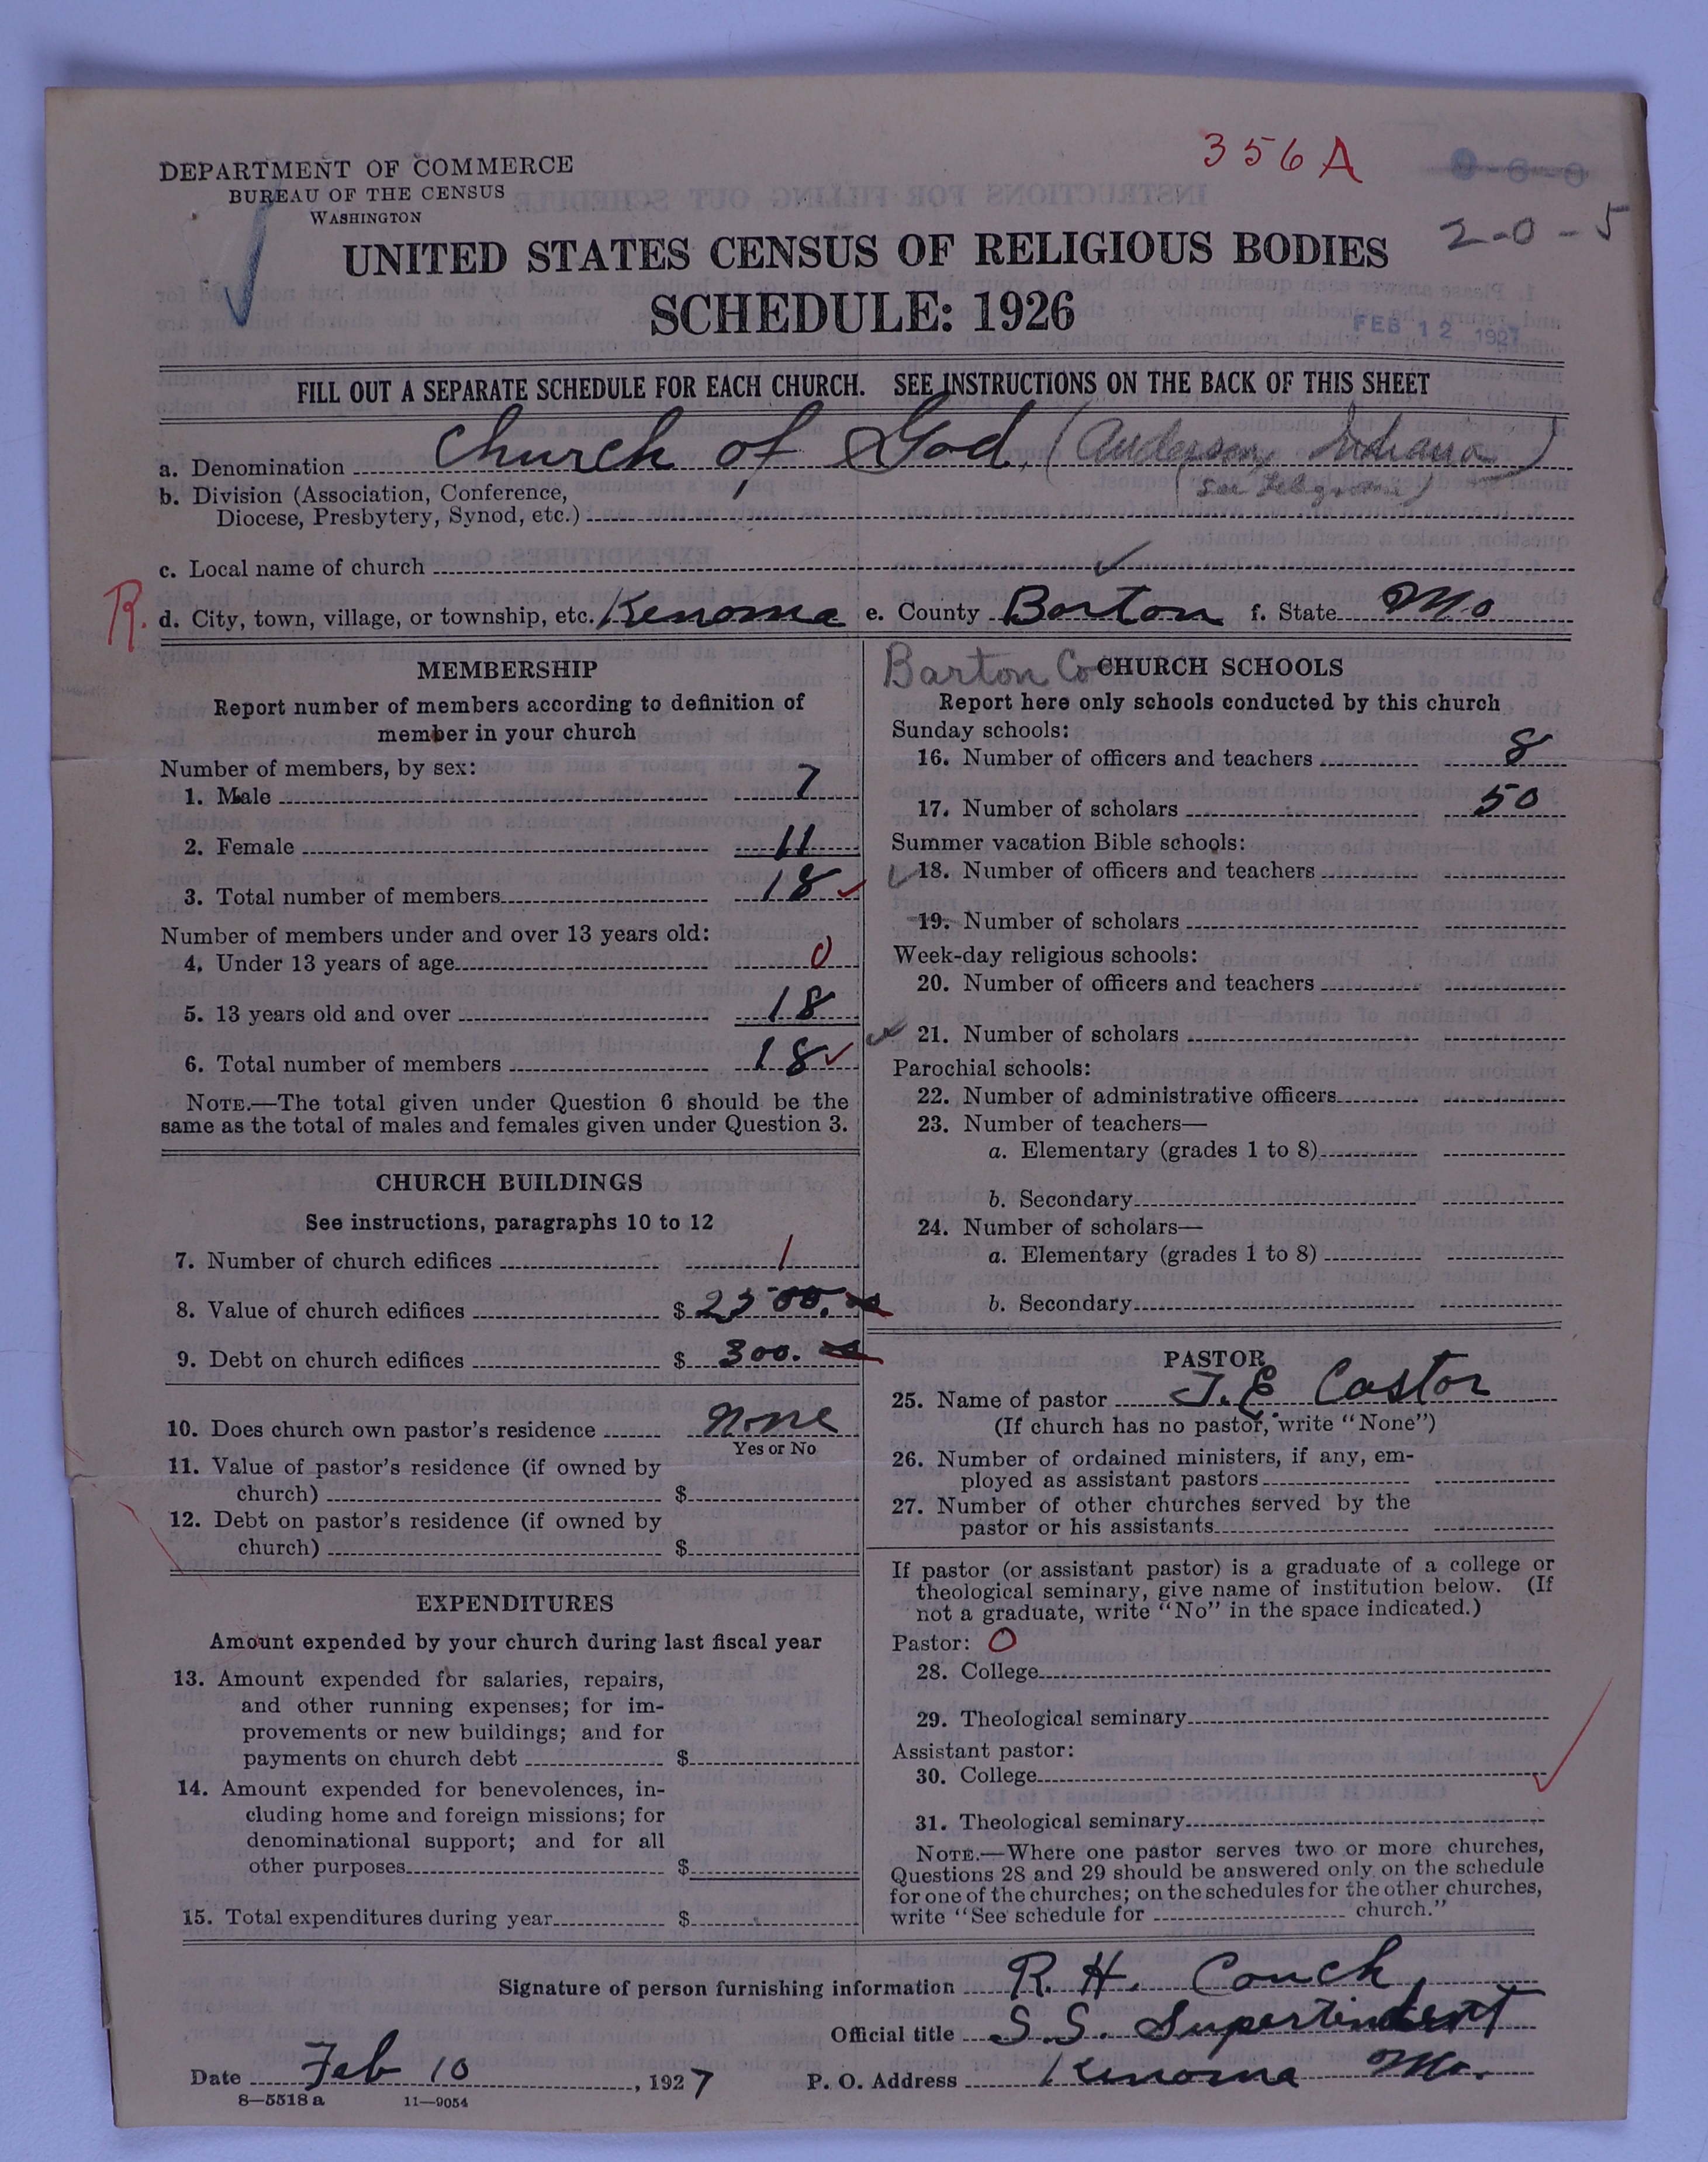 356A
DEPARTMENT OF COMMERCE
BUREAU OF THE CENSUS
WASHINGTON
2-0-5
UNITED STATES CENSUS OF RELIGIOUS BODIES
SCHEDULE: 1926
FEB 12 1927
FILL OUT A SEPARATE SCHEDULE FOR EACH CHURCH. SEE INSTRUCTIONS ON THE BACK OF THIS SHEET
a. Denomination Church of God (Anderson, Indiana)
b. Division (Association, Conference, (see
Diocese, Presbytery, Synod, etc.)
c. Local name of church
R. d. City, town, village, or township, etc. Kenoma e. County Barton f. State Mo
MEMBERSHIP
Report number of members according to definition of
member in your church
Number of members, by sex:
1. Male 7
2. Female 11
3. Total number of members 18
Number of members under and over 13 years old:
4. Under 13 years of age 0
5. 13 years old and over 18
6. Total number of members 18
NOTE.—The total given under Question 6 should be the
same as the total of males and females given under Question 3.
CHURCH BUILDINGS
See instructions, paragraphs 10 to 12
7. Number of church edifices 1
8. Value of church edifices $ 2500.
9. Debt on church edifices $ 300.
10. Does church own pastor's residence None
Yes or No
11. Value of pastor's residence (if owned by
church) $
12. Debt on pastor's residence (if owned by
church) $
EXPENDITURES
Amount expended by your church during last fiscal year
13. Amount expended for salaries, repairs,
and other running expenses; for im-
provements or new buildings; and for
payments on church debt $
14. Amount expended for benevolences, in-
cluding home and foreign missions; for
denominational support; and for all
other purposes $
15. Total expenditures during year $
Barton Co CHURCH SCHOOLS
Report here only schools conducted by this church
Sunday schools:
16. Number of officers and teachers 8
17. Number of scholars 50
Summer vacation Bible schools:
18. Number of officers and teachers
19. Number of scholars
Week-day religious schools:
20. Number of officers and teachers
21. Number of scholars
Parochial schools:
22. Number of administrative officers
23. Number of teachers—
a. Elementary (grades 1 to 8)
b. Secondary
24. Number of scholars—
a. Elementary (grades 1 to 8)
b. Secondary
PASTOR
25. Name of pastor J. E. Castor
(If church has no pastor, write "None")
26. Number of ordained ministers, if any, em-
ployed as assistant pastors
27. Number of other churches served by the
pastor or his assistants
If pastor (or assistant pastor) is a graduate of a college or
theological seminary, give name of institution below. (If
not a graduate, write "No" in the space indicated.)
Pastor: 0
28. College
29. Theological seminary
Assistant pastor:
30. College
31. Theological seminary
NOTE.—Where one pastor serves two or more churches,
Questions 28 and 29 should be answered only on the schedule
for one of the churches; on the schedules for the other churches,
write "See schedule for church."
Signature of person furnishing information R. H. Couch
Official title S. S. Supertindent
Date Feb 10, 1927 P. O. Address Kenoma Mo.
8—5518 a 11—9054